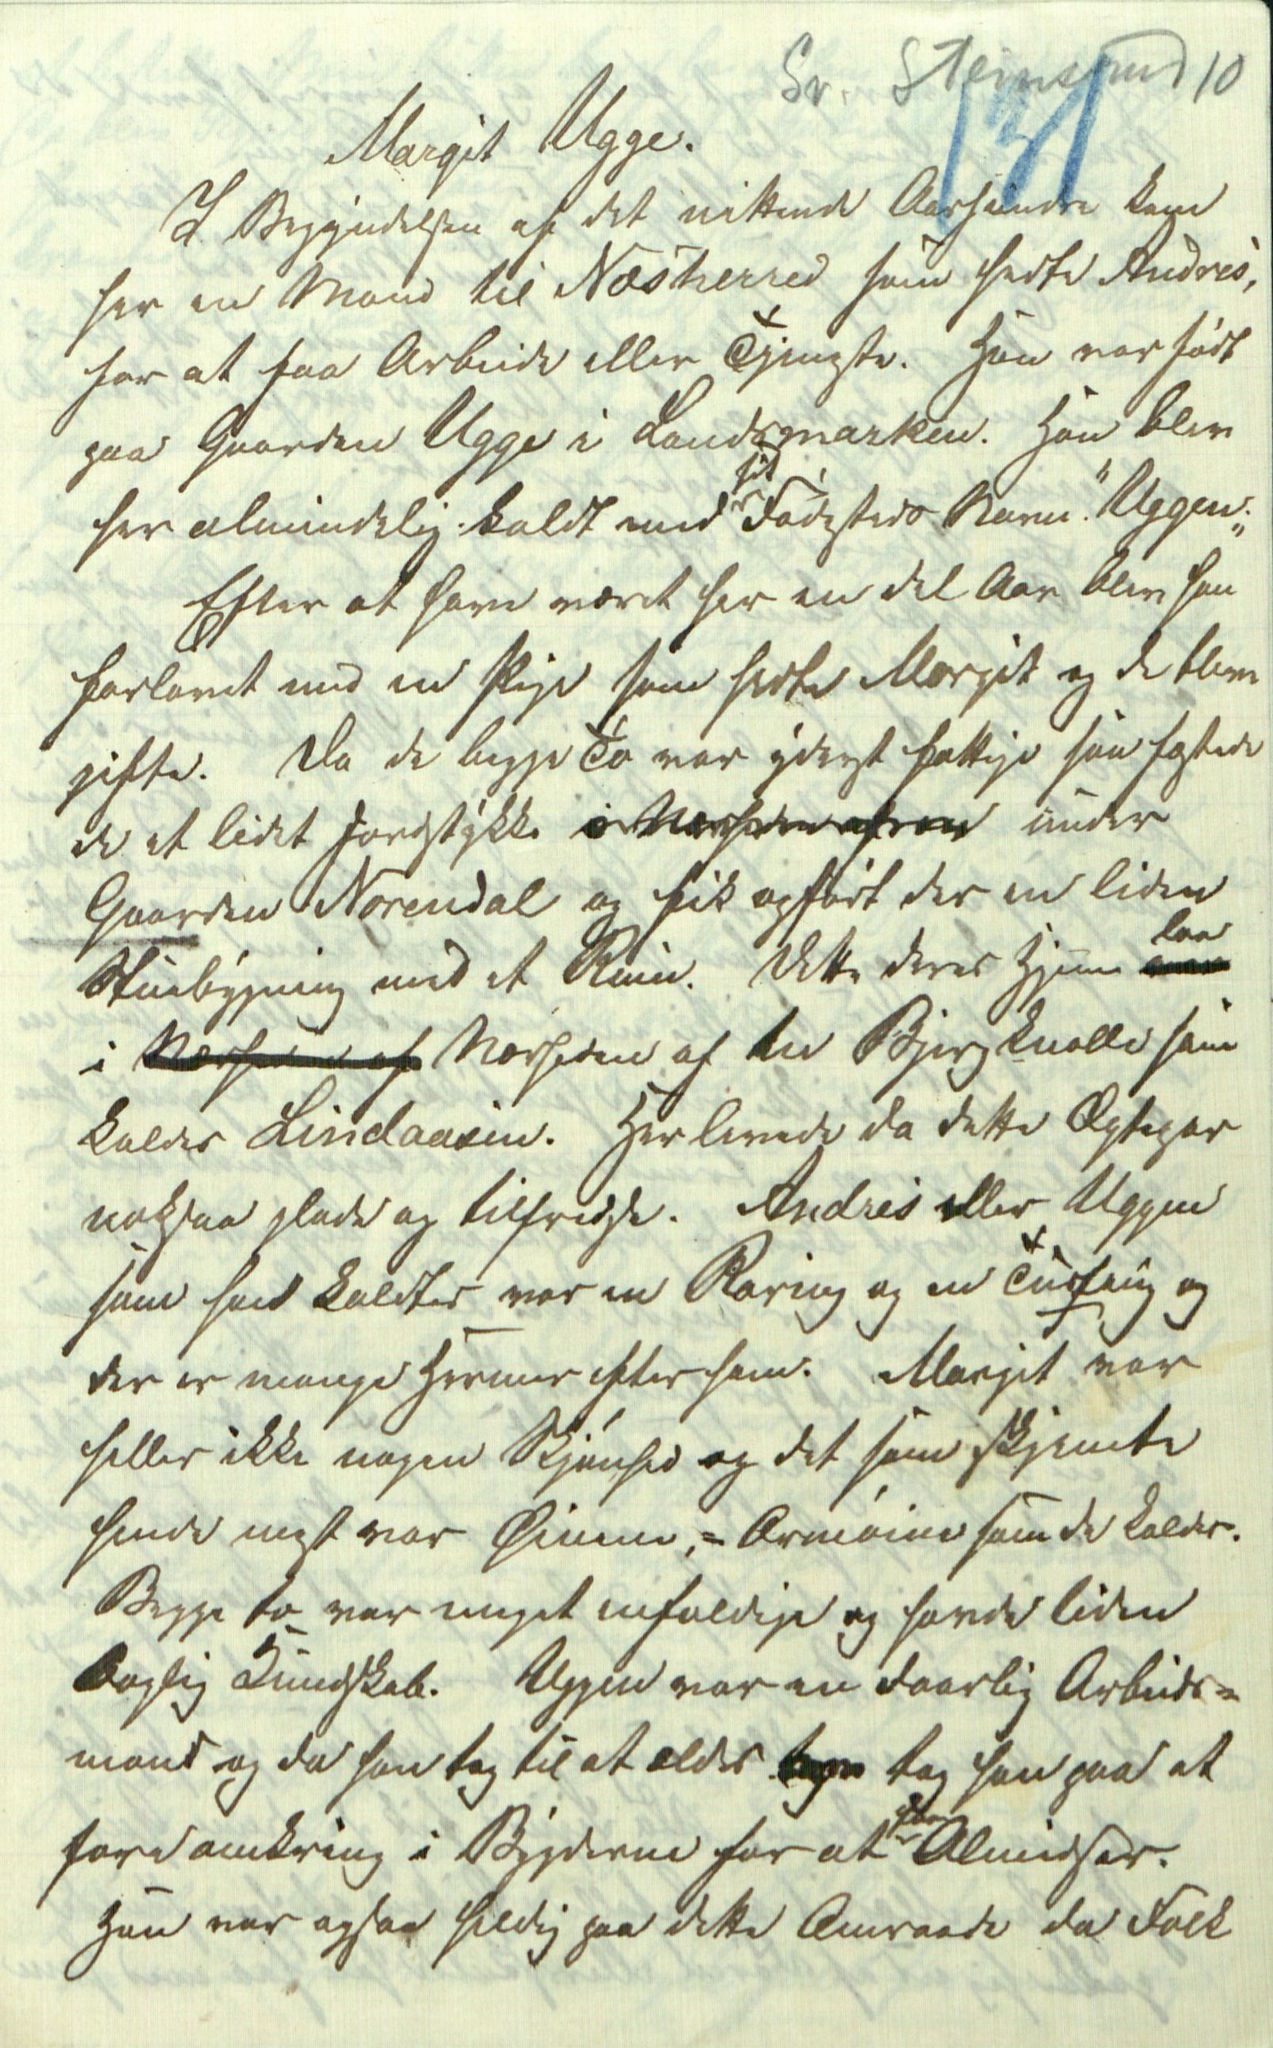 Sv. Steinsrud 10
31
Margit Ugge.
I Begyndelsen af det nittende Aarhundre kom
her en Mand til Næsherred som hedte Andres,
for at faa Arbeide eller Tjeneste. Han var født
paa Gaarden Ugge i Landsmarken. Han blev
her almindelig kaldt med sit Fødesteds Navn. "Uggen„
Efter at have været her en del Aar blev han
forlovet med en Pige som hedte Margit og de blev
gifte. Da de begge To var yderst fattige saa fæstede
de et lidet Jordstykke i Nærheden af under
Gaarden Norendal og fik opført der en liden
Stuebygning med et Rum. Dette deres Hjem laa
i Nærheden af Nærheden af en Bjerg knolle som
kaldes Lindaasen. Her levede da dette Ægtepar
noksaa glade og tilfredse. Andres eller Uggen
som han kaldtes var en Raring og en Tusseng og
der er mange Hermer efter ham. Margit var
heller ikke nogen Skjønhed og det som skjemte
hende mest var Øinene, = Ormøine som de kaldes.
Begge to var meget enfoldige og havde liden
boglig Kundskab. Uggen var en daarlig Arbeids=
mand og da han tog til at ældes tog han paa at
fare omkring i Bygderne for at Almidser.
Han var ogsaa heldig paa dette Omraade da Folk